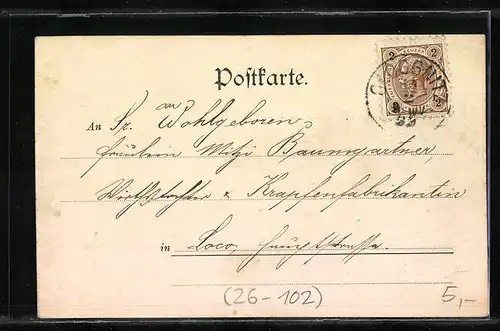 Postkarte.
an
An Sr. Wohlgeboren
Fräulein Mitzi Baumgartner,
Wirthstochter & Krapfenfabrikantin
in Loco, Hauptstrasse.
(26-102)
5,-
2 2